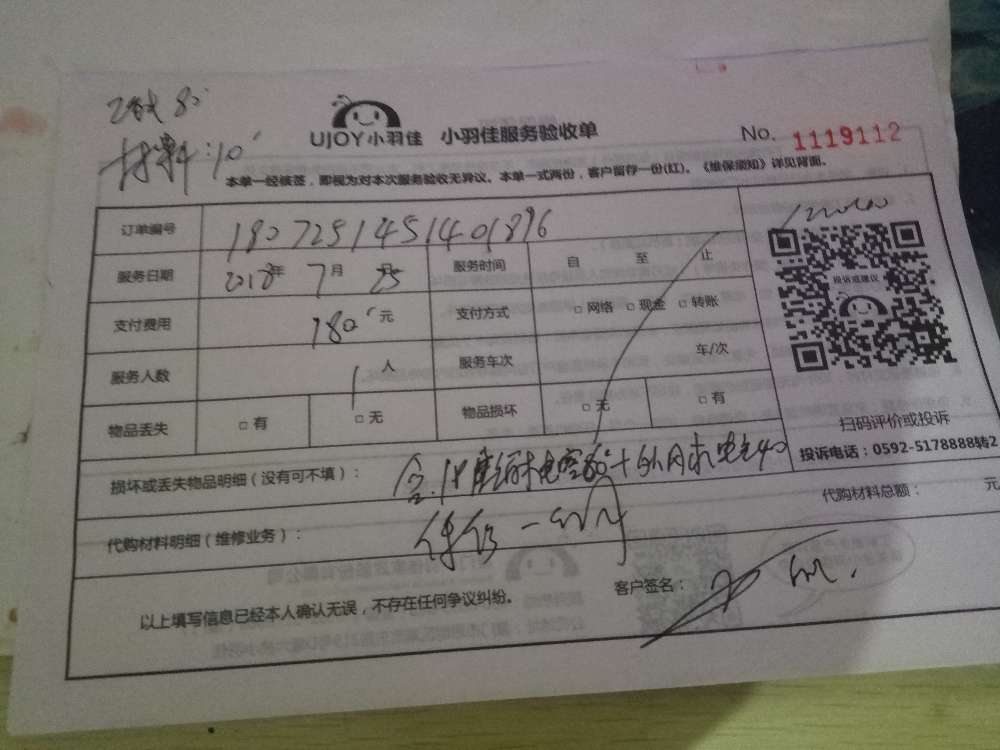 80
材料:10
UJOY小羽佳 小羽佳服务验收单
No. 1119112
本单一经核签,即视为对本次服务验收无异议。本单一式两份,客户留存一份(红)。《维保须知》详见背面。
订单编号 1807251451401896
服务日期 2018年 7月 25日 服务时间 自 至 止
投诉或建议
支付费用 180元 支付方式 □ 网络 □ 现金 □ 转账
服务人数 1人 服务车次 车/次
物品丢失 □ 有 □ 无 物品损坏 □ 无 □ 有
扫码评价或投诉
投诉电话:0592-5178888转2
损坏或丢失物品明细(没有可不填):
代购材料总额: 元
代购材料明细(维修业务):
以上填写信息已经本人确认无误,不存在任何争议纠纷。
客户签名: